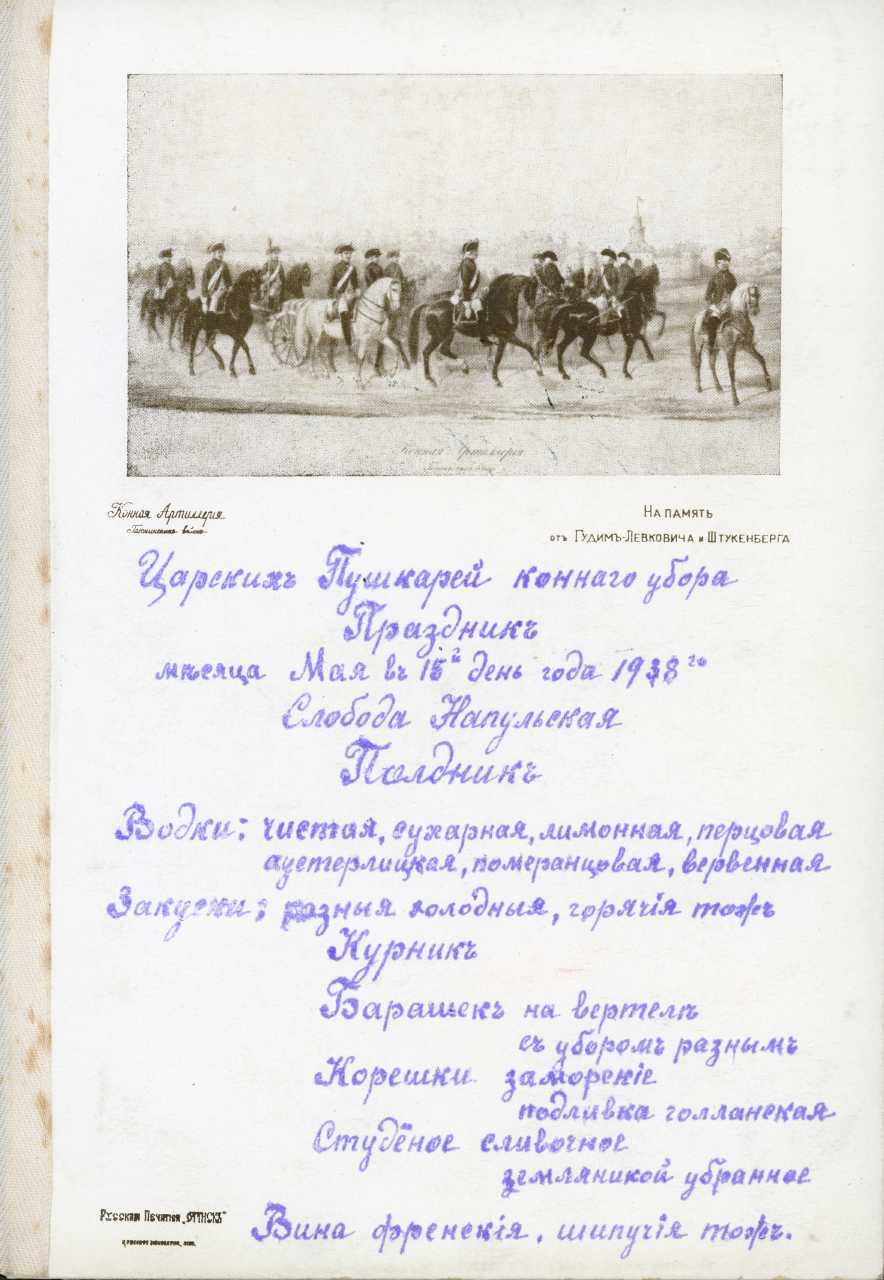 Конная Артиллерия
Конная Артиллерія
НА ПАМЯТЬ
отъ ГУДИМЪ-ЛЕВКОВИЧА и ШТУКЕНБЕРГА
Царскихъ Пушкарей коннаго убора
Праздникъ
мѣсяца Мая въ 15й день года 1938го
Слобода Напульская
Полдникъ
Водки: чистая, сухарная, лимонная, перцовая
аустерлицкая, померанцовая, вервенная
Закуски: разныя холодныя, горячія тожъ
Курникъ
Барашекъ на вертелѣ
съ уборомъ разнымъ
Корешки заморскіе
подливка голланская
Студёное сливочное
земляникой убранное
Русская Печатня
Вина френскія, шипучія тожъ.